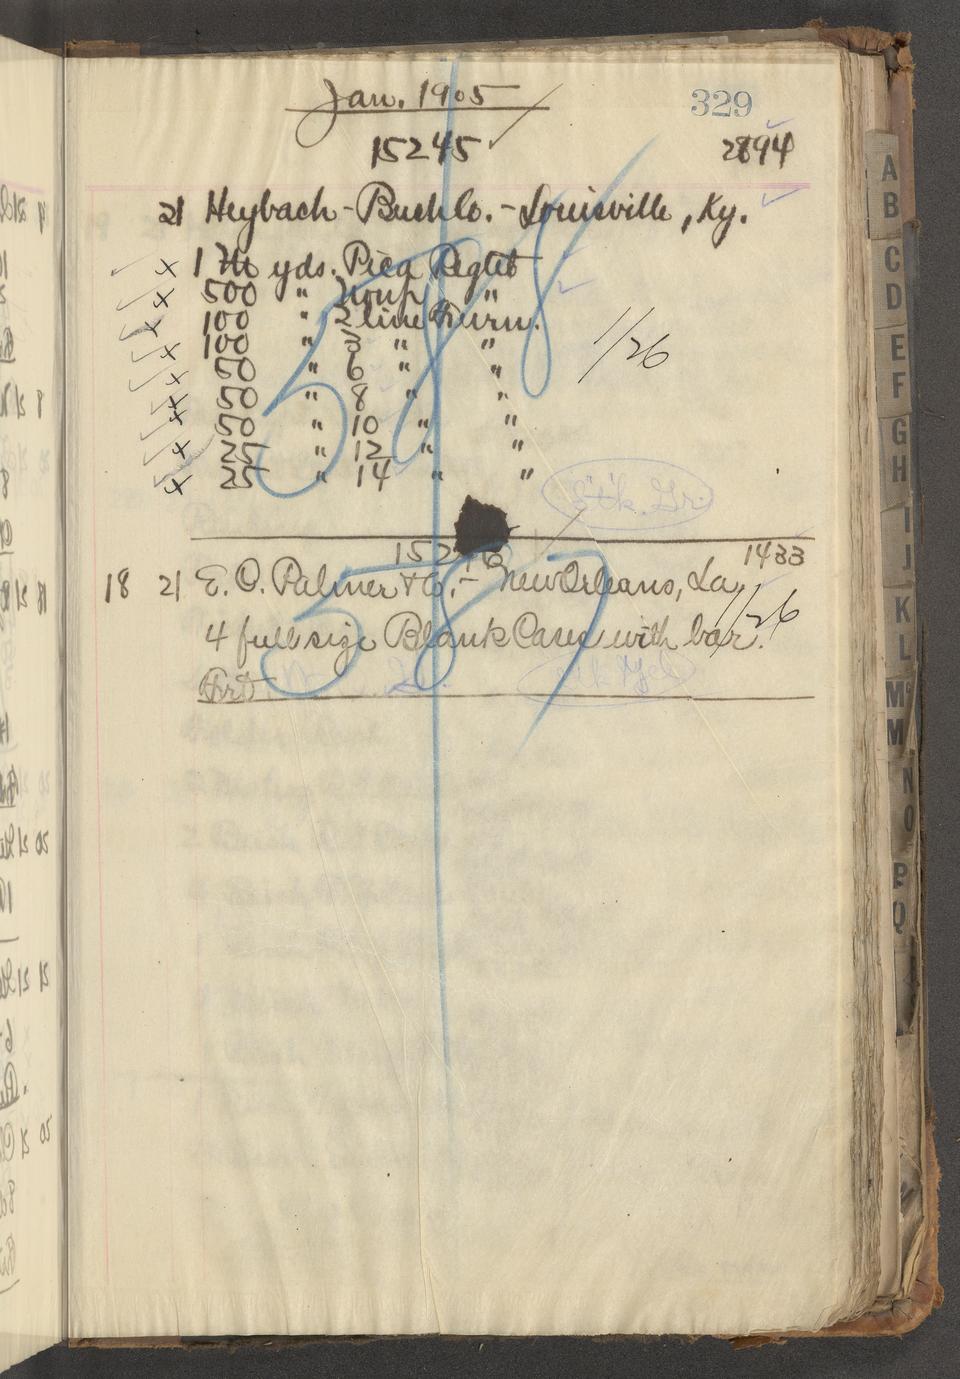 Jan. 1905
329
15245
2894
21 Heybach-Bush Co. - Louisville, Ky.
1 M yds. Pica Reglet
500 " Nonp "
100 " 2 line Furn.
100 " 3 " "
50 " 6 " "
50 " 8 " "
50 " 10 " "
25 " 12 " "
25 " 14 " "
1/26
548
Stk. Gr.
1433
18 21 E. O. Palmer & Co. - New Orleans, La.
1/26
4 full size Blank Cases with bar.
Frt
587
Stk Yel
A
B
C
D
E
F
G
H
I
J
K
L
Mc
M
N
O
P
Q